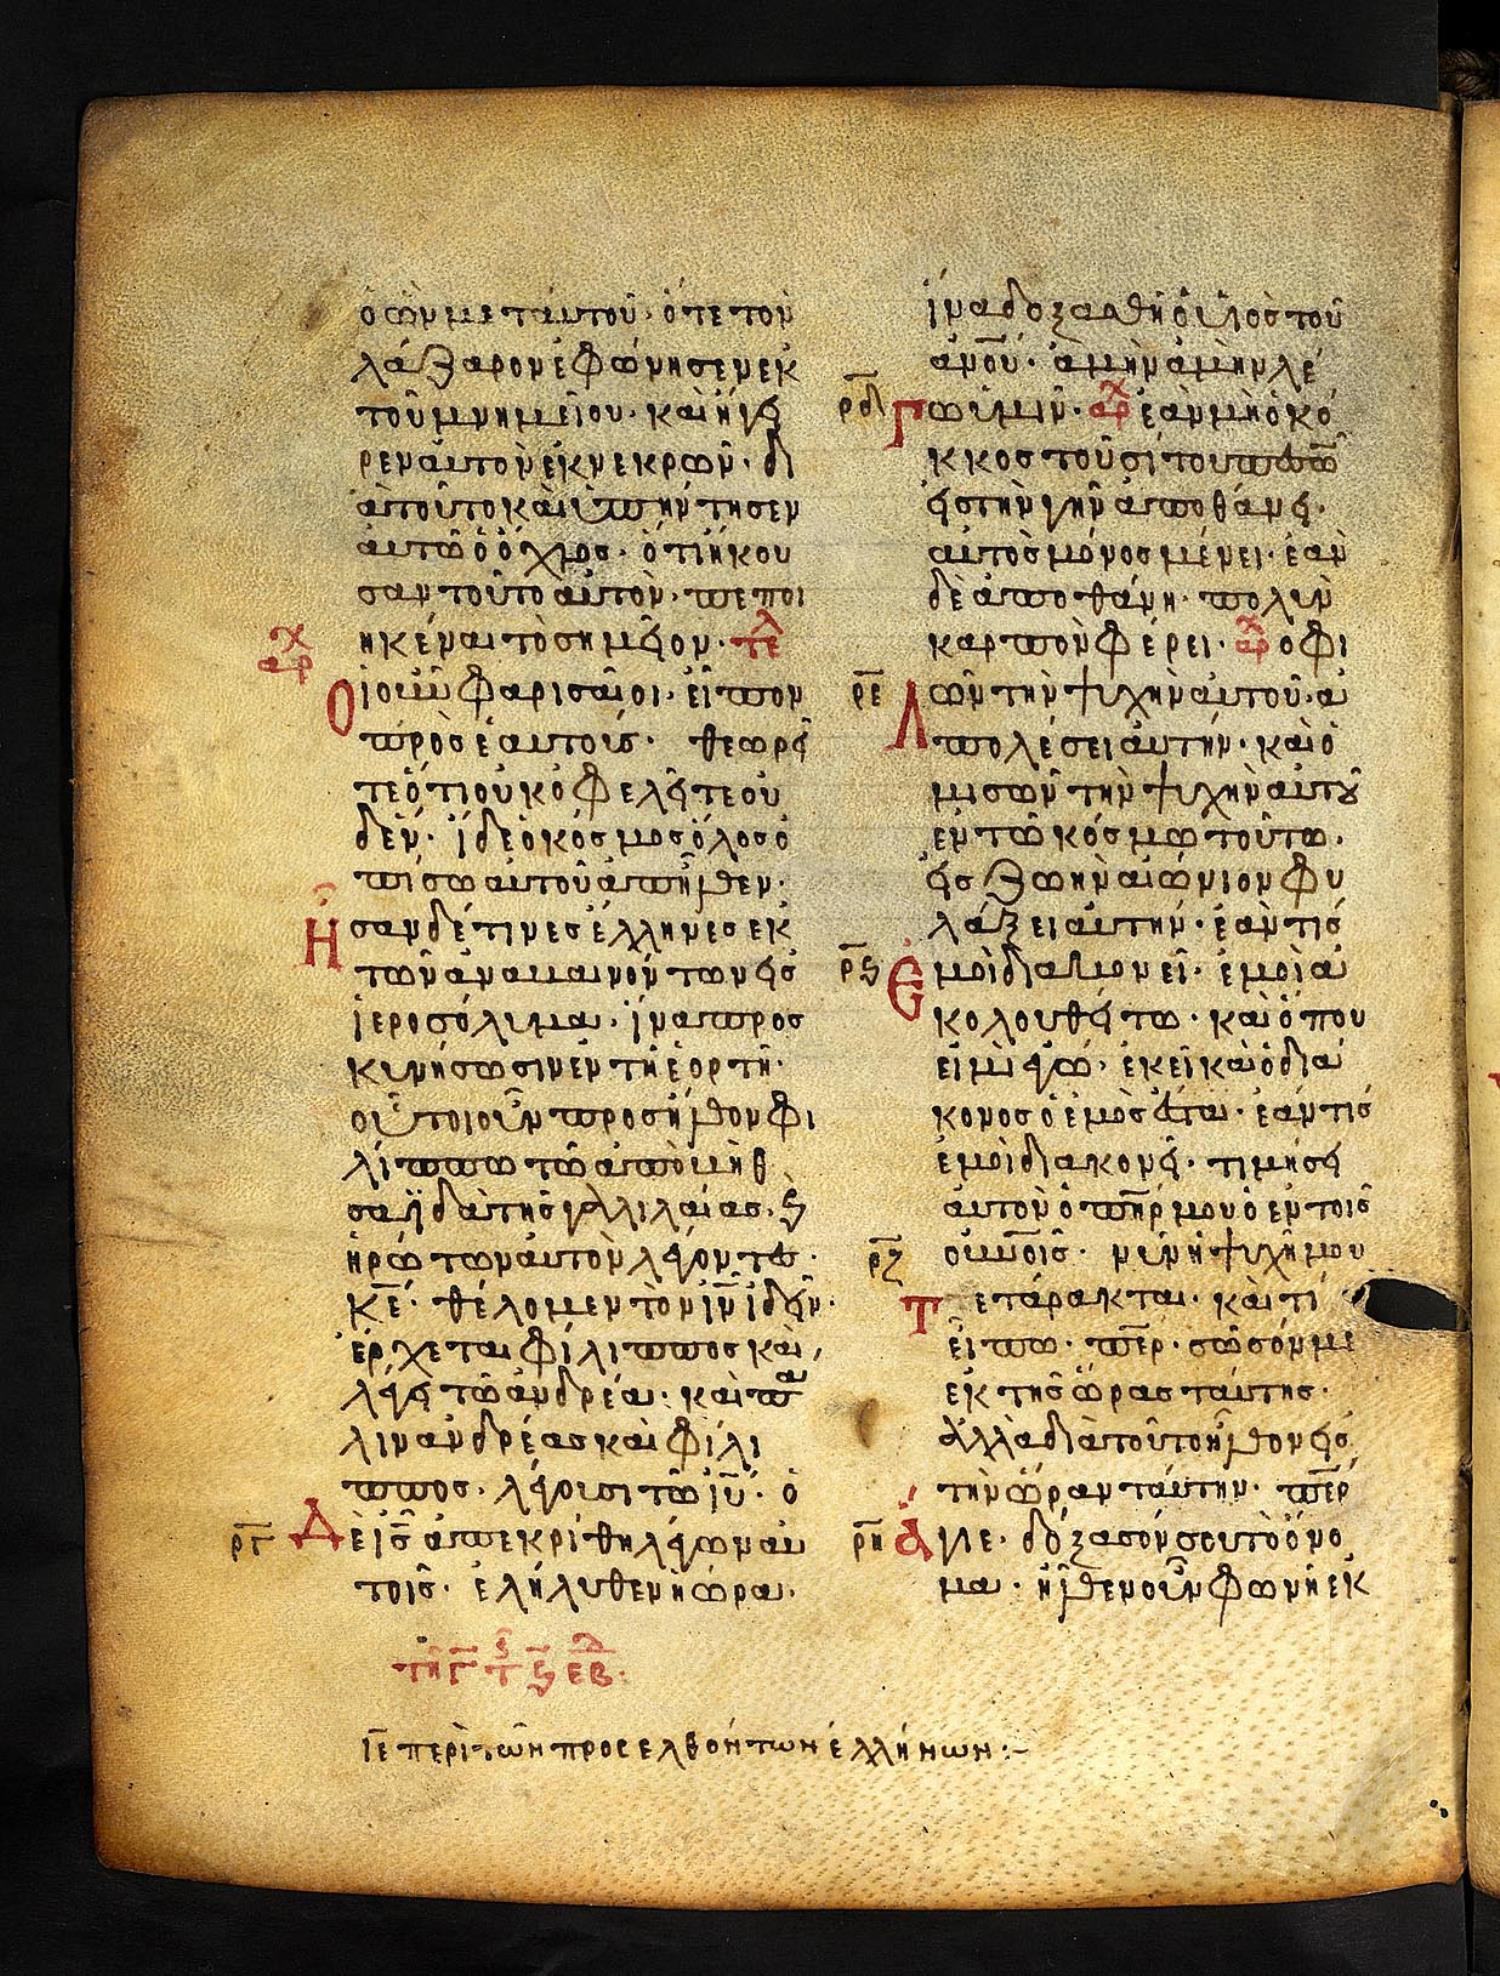 ὁ ὢν μετ' αὐτοῦ· ὅτε τὸν
λάζαρον ἐφώνησεν ἐκ
τοῦ μνημείου· καὶ ἤγει
ρεν αὐτὸν ἐκ νεκρῶν· δι
ὰ τοῦτο καὶ ὑπήντησεν
αὐτῶ ὁ ὄχλος· ὅτι ἤκου
σαν τοῦτο αὐτὸν πεποι
ηκέναι τὸ σημεῖον· τε^λ
αρ^χ
Ὁι οὖν φαρισαῖοι· εἶπον
πρὸς ἑαυτούς· θεωρεῖ
τε ὅτι οὐκ ὀφελεῖτε οὐ
δέν· ἴδε ὁ κόσμος ὅλος ὀ
πίσω αὐτοῦ ἀπῆλθεν·
Ἦσαν δέ τινες ἕλληνες ἐκ
τῶν ἀναβαινόντων εἰς
ἱεροσόλυμα· ἵνα προσ
κυνήσωσιν ἐν τῆ ἑορτῆ·
οὗτοι οὖν προσῆλθον φι
λίππω τῶ ἀπὸ βηθ
σαϊδὰ τῆς γαλιλαίας· ϗ
ἠρώτων αὐτὸν λέγοντες·
κ̅ε̅· θέλομεν τὸν ι̅ν̅ ἰδεῖν·
ἔρχεται φίλιππος καὶ
λέγει τῶ ἀνδρέα· καὶ πα
λιν ἀνδρέας καὶ φίλι
ππος· λέγουσι τῶ ι̅υ̅· ὁ
ρ̅γ̅ Δὲ ι̅ς̅ ἀπεκρίθη λέγων αὐ
τοῖς· ἐλήλυθεν ἡ ὥρα·
τῆ γ̅ τ̅ς̅ ϛ̅ ε̅β̅^δ
ι̅ε̅ περὶ τῶν προσελθόντων ἑλλήνων:–
ἵνα δοξασθῆ ὁ υἱὸς τοῦ
α̅ν̅ο̅υ̅· ἀμὴν ἀμὴν λέ
ρ̅δ̅ Γω ὑμῖν· αρ^χ ἐὰν μὴ ὁ κό
κκος τοῦ σίτου πεσὼν
εἰς τὴν γῆν ἀποθάνει·
αὐτὸς μόνος μένει· ἐὰν
δὲ ἀποθάνη· πολὺν
καρπὸν φέρει· αρ^χ ὁ φι
ρ̅ε̅ Λῶν τὴν ψυχὴν αὐτοῦ· ἀ
πολέσει αὐτήν· καὶ ὁ
μισῶν τὴν ψυχὴν αὐτοῦ
ἐν τῶ κόσμω τούτω·
εἰς ζωὴν αἰώνιον φυ
λάξει αὐτήν· ἐάν τις
ρ̅ϛ̅ Ἐμοὶ διακονεῖ· ἐμοὶ ἀ
κολουθείτω· καὶ ὅπου
εἰμὶ ἐγώ· ἐκεῖ καὶ ὁ διά
κονος ὁ ἐμὸς ἔσται· ἐάν τις
ἐμοὶ διακονεῖ· τιμήσει
αὐτὸν ὁ π̅η̅ρ̅ μου ὁ ἐν τοῖς
ρ̅ζ̅ οὐ̅ν̅οῖς· νῦν ἡ ψυχή μου
Τετάρακται· καὶ τί
εἴπω· π̅ε̅ρ̅· σῶσόν με
ἐκ τῆς ὥρας ταύτης·
ἀλλὰ διὰ τοῦτο ἦλθον εἰς
τὴν ὥραν ταύτην· π̅ε̅ρ̅
ρ̅η̅ Ἅγιε· δόξασόν σου τὸ ὄνο
μα· ἦλθεν οὖν φωνὴ ἐκ